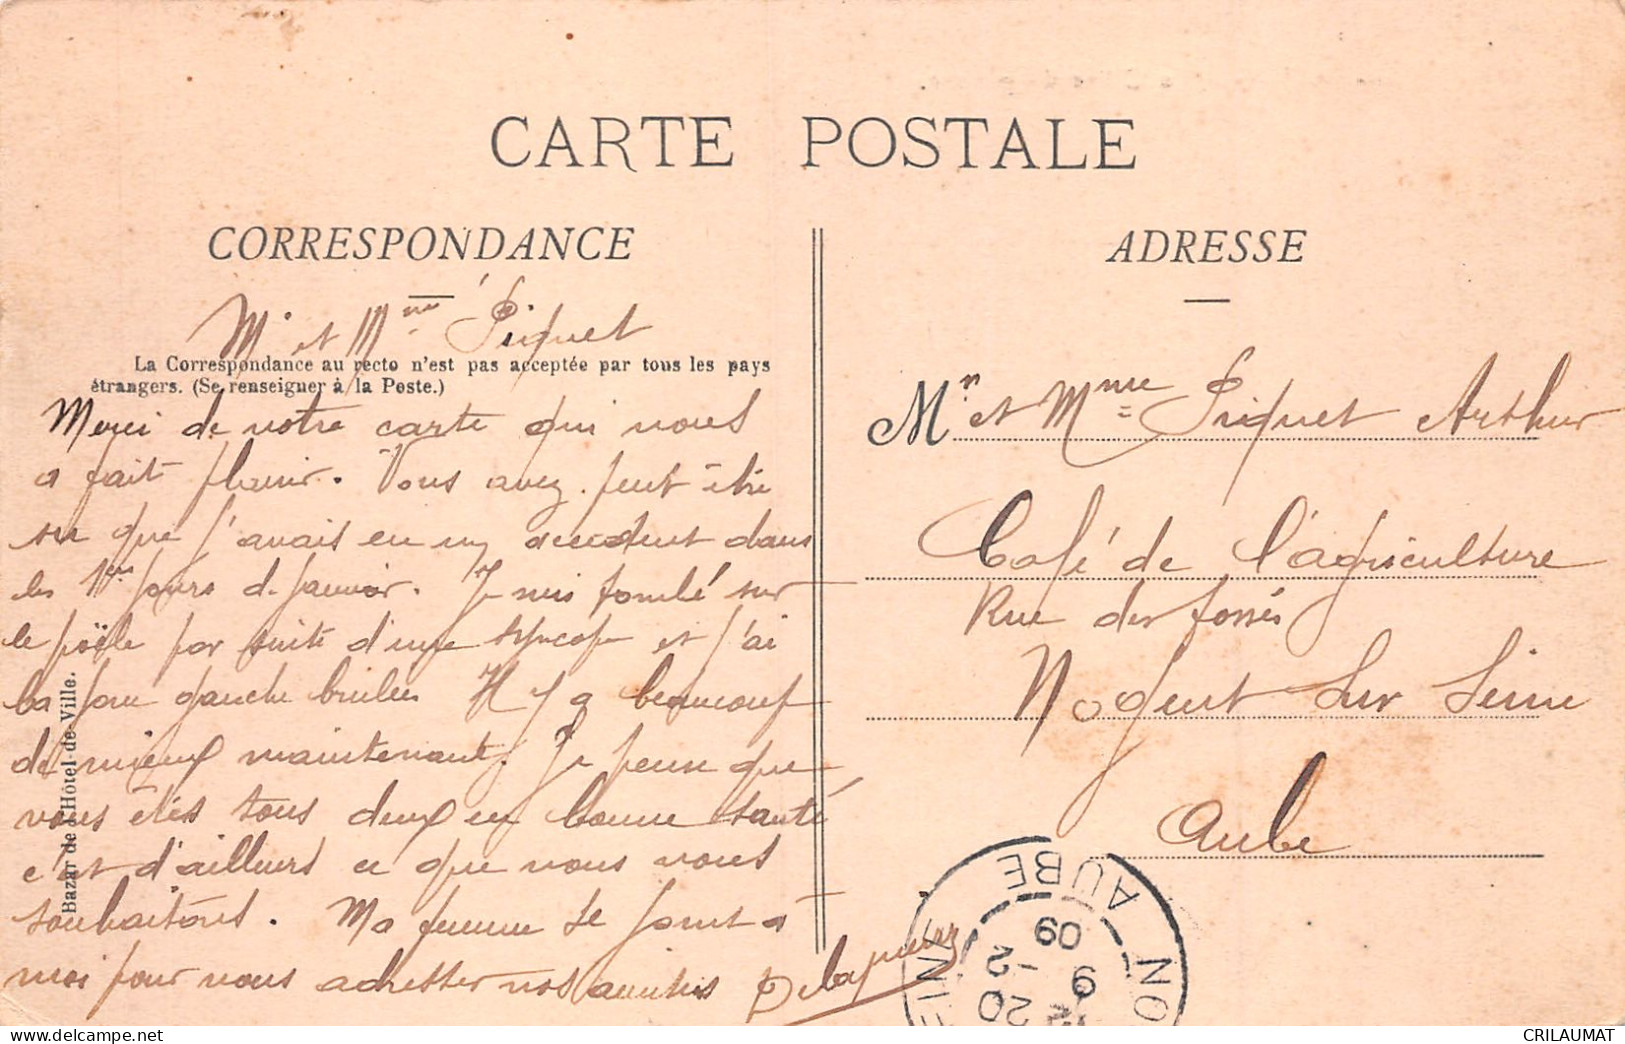 CARTE POSTALE
CORRESPONDANCE
ADRESSE
Mr et Mme Piquet
La Correspondance au recto n'est pas acceptée par tous les pays
étrangers. (Se renseigner à la Poste.)
Merci de votre carte qui nous
a fait plaisir. Vous avez peut être
su que j'avais eu un accident dans
les 1ers jours de janvier. Je suis tombé sur
le poële par suite d'une syncope et j'ai
la joue gauche brulée Il y a beaucoup
de mieux maintenant. Je pense que
vous êtes tous deux en bonne santé
c'est d'ailleurs ce que nous vous
souhaitons. Ma femme se joint à
moi pour vous adresser nos amitiés
Bazar de l'Hôtel-de-Ville.
Mr et Mme Piquet Arthur
Café de l'agriculture
Rue des fossés
Nogent sur Seine
Aube
AUBE
09
CRILAUMAT